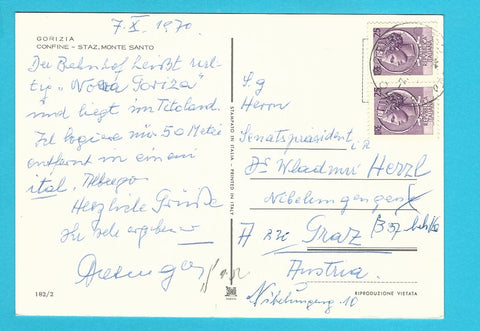 7. X. 1970
GORIZIA
CONFINE - STAZ. MONTE SANTO
Der Bahnhof heißt
"Nova Goriza"
und liegt im Titoland.
Ich logiere nur 50 Meter
entfernt in einem
ital.
Herzliche Grüße
Ihr sehr ergebener
182/2
STAMPATO IN ITALIA - PRINTED IN ITALY
25
25
S.g
Herrn
Senatspräsident i R
Dr Wladimir Herzl
Nibelungengasse
A Graz
Austria
Nibelungeng 10
RIPRODUZIONE VIETATA